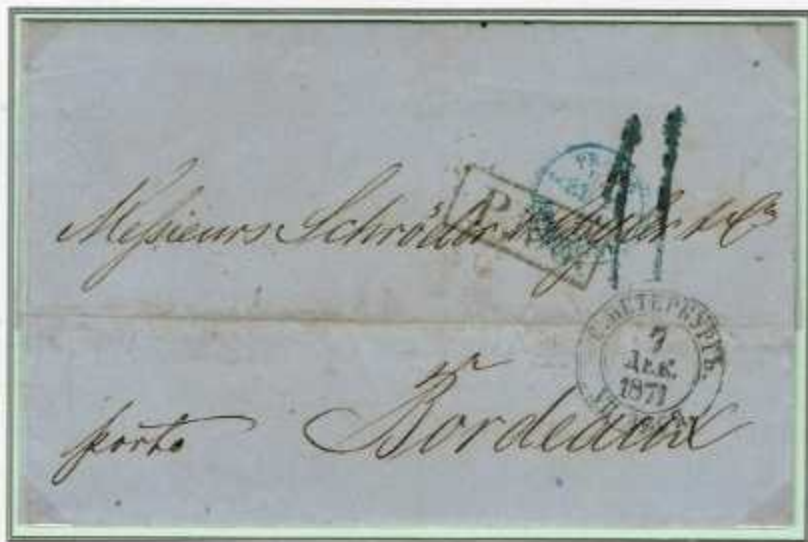 11
Messieurs Schröder & Schÿler & Co
С. ПЕТЕРБУРГЪ.
7
ДЕК.
1871
porto
Bordeaux